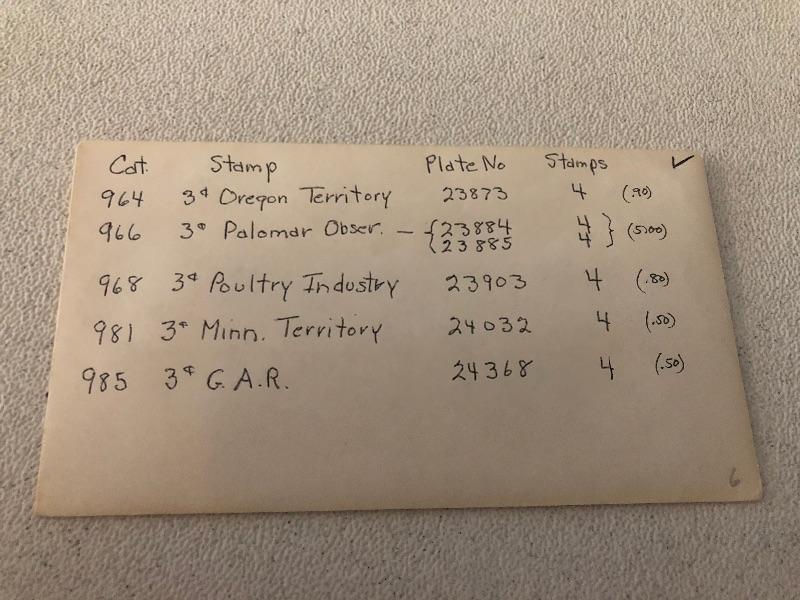 Cat. Stamp Plate No Stamps ✓
964 3¢ Oregon Territory 23873 4 (.90)
966 3¢ Palomar Obser. — { 23884 4 } (5.00)
23885 4
968 3¢ Poultry Industry 23903 4 (.80)
981 3¢ Minn. Territory 24032 4 (.50)
985 3¢ G.A.R. 24368 4 (.50)
6